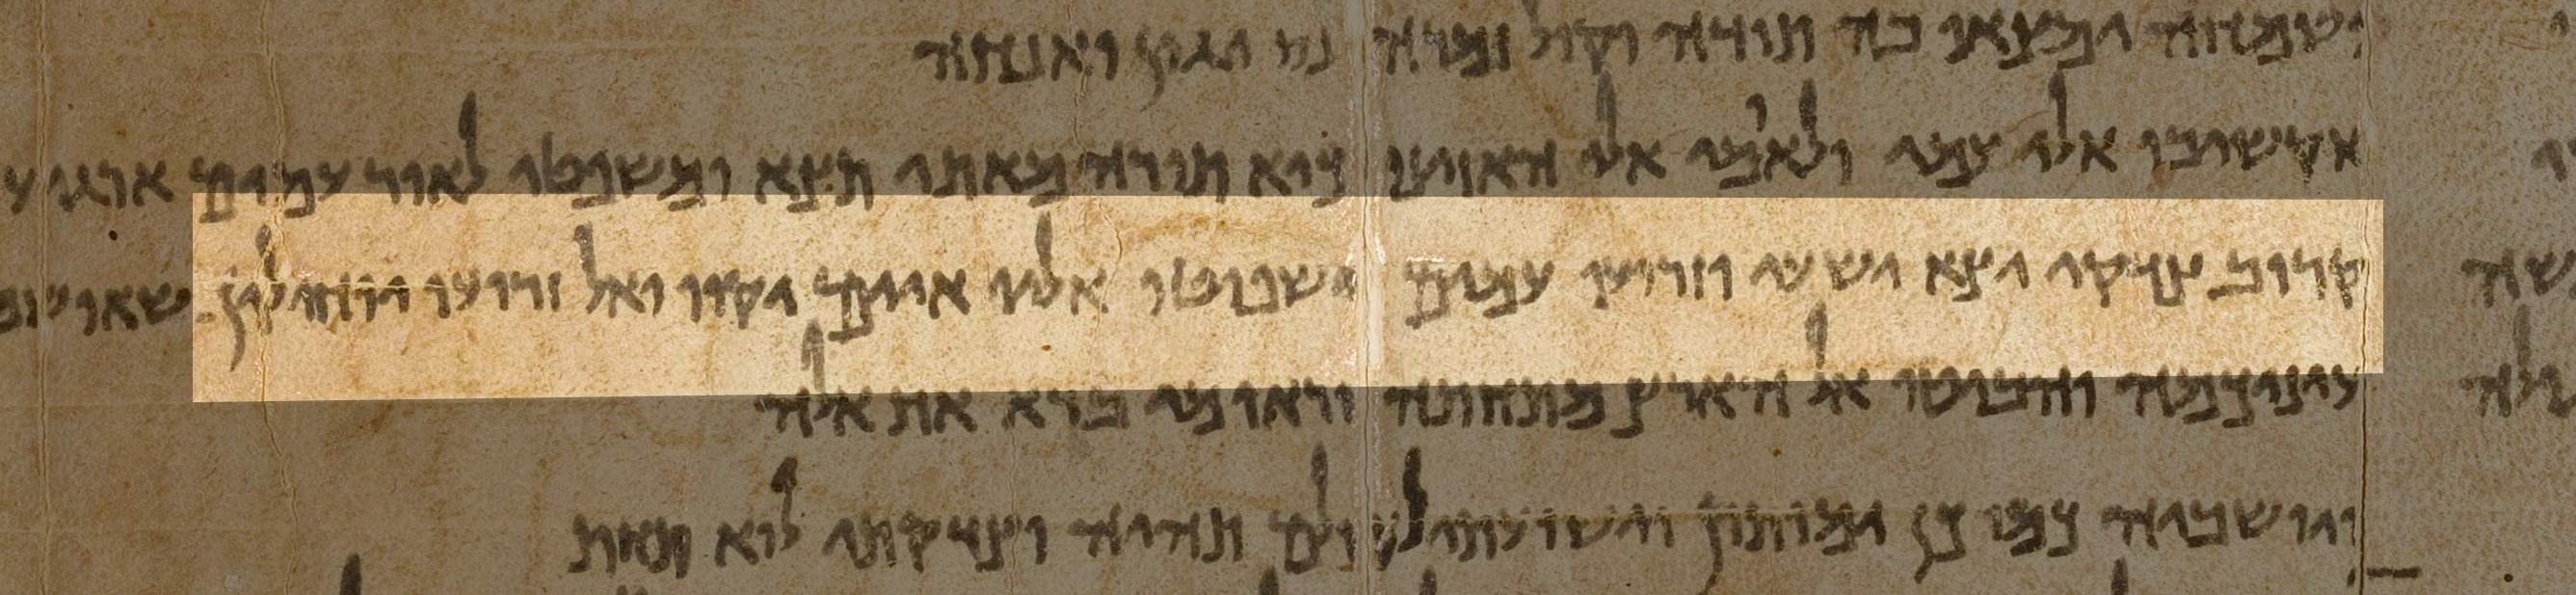 ושמחה ימצאו בה תודה וקול זמרה נס יגון ואנחה
אקשיבו אלי עמי ולאומי אלי האזינו כיא תורה מאתי תצא ומשפטי לאור עמים ארגיע
קרוב צדקי יצא ישעי וזרועו עמים ישפוטו אליו איים יקוו ואל זרועו יוחילון שאו שמים
עיניכמה והביטו אל הארץ מתחתה וראו מי ברא את אלה
ויושביה כמו כן ימותון וישועתי לעולם תהיה וצדקתי לוא תחת